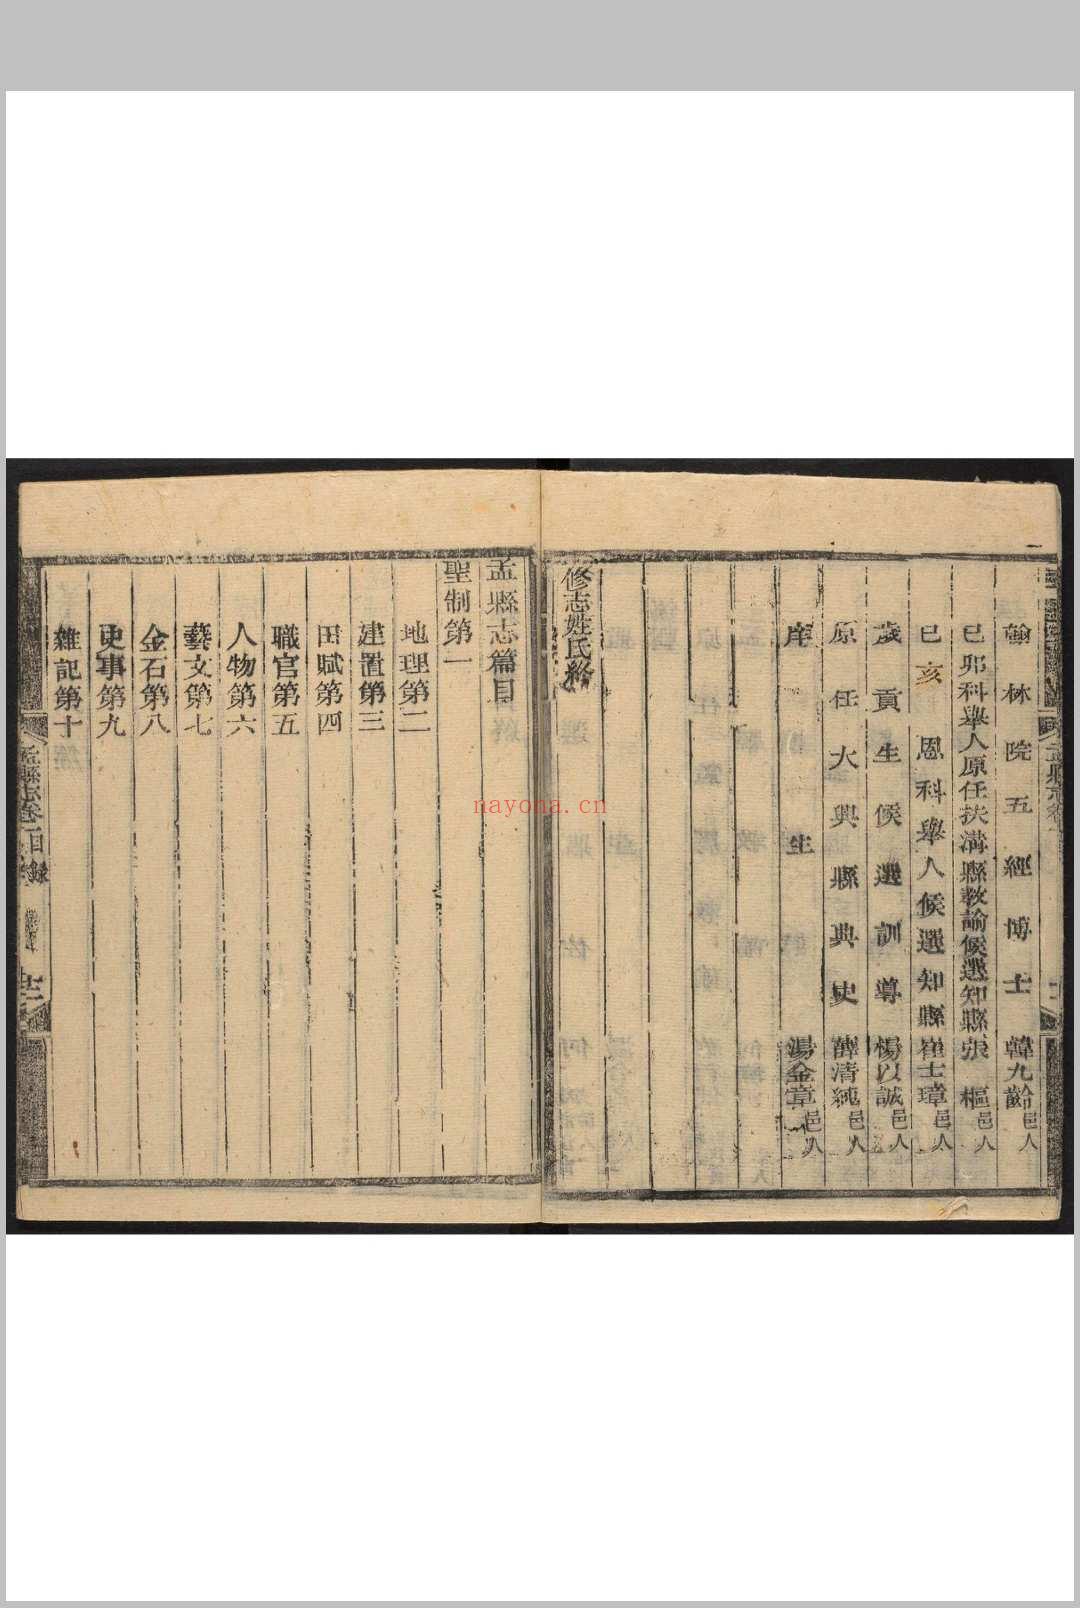 翰林院五經博士韓九齡邑人
己卯科舉人原任扶溝縣教諭候選知縣張樞邑人
己亥恩科舉人候選知縣崔士璋邑人
歲貢生候選訓導楊以誠邑人
原任大興縣典史薛清純邑人
庠生湯金章邑人
修志姓氏終
孟縣志篇目
聖制第一
地理第二
建置第三
田賦第四
職官第五
人物第六
藝文第七
金石第八
史事第九
雜記第十
孟縣志卷一目錄
nayona.cn